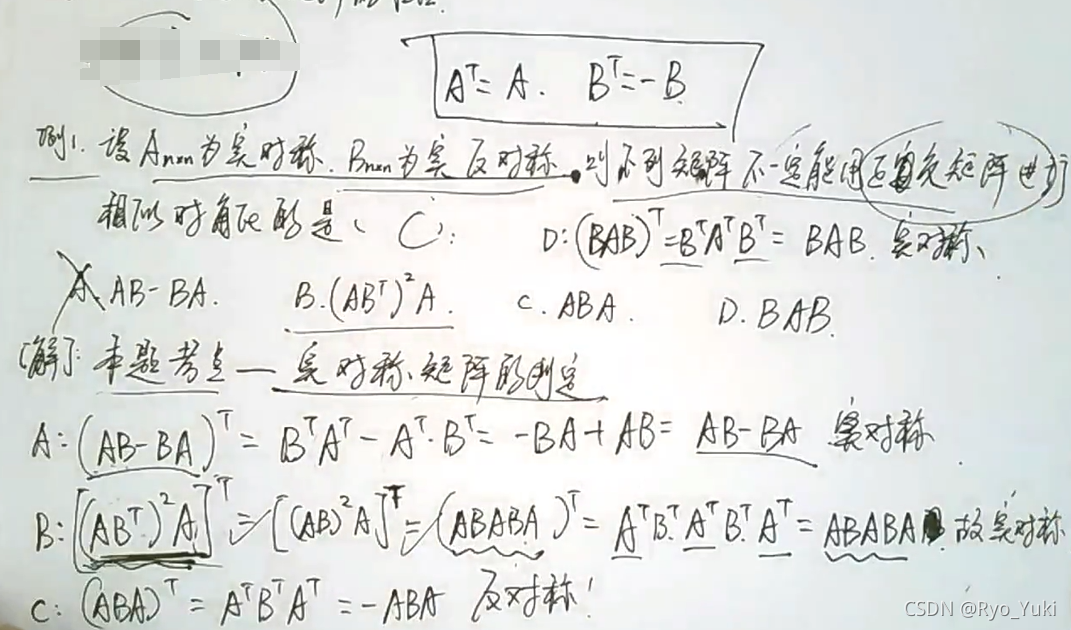 A^T = A. B^T = -B
例1. 设 A_{n×n} 为实对称. B_{n×n} 为实反对称. 则下列矩阵不一定能用正交矩阵进行
相似对角化的是( C ):
D: (BAB)^T = B^T A^T B^T = BAB. 实对称、
A. AB-BA. B. (AB^T)^2 A. C. ABA. D. BAB.
[解]: 本题考点 — 实对称矩阵的判定
A: (AB-BA)^T = B^T A^T - A^T·B^T = -BA+AB = AB-BA 实对称.
B: [(AB^T)^2 A]^T = [(AB)^2 A]^T = (ABABA)^T = A^T B^T A^T B^T A^T = ABABA 故实对称
C: (ABA)^T = A^T B^T A^T = -ABA 反对称!
CSDN @Ryo_Yuki